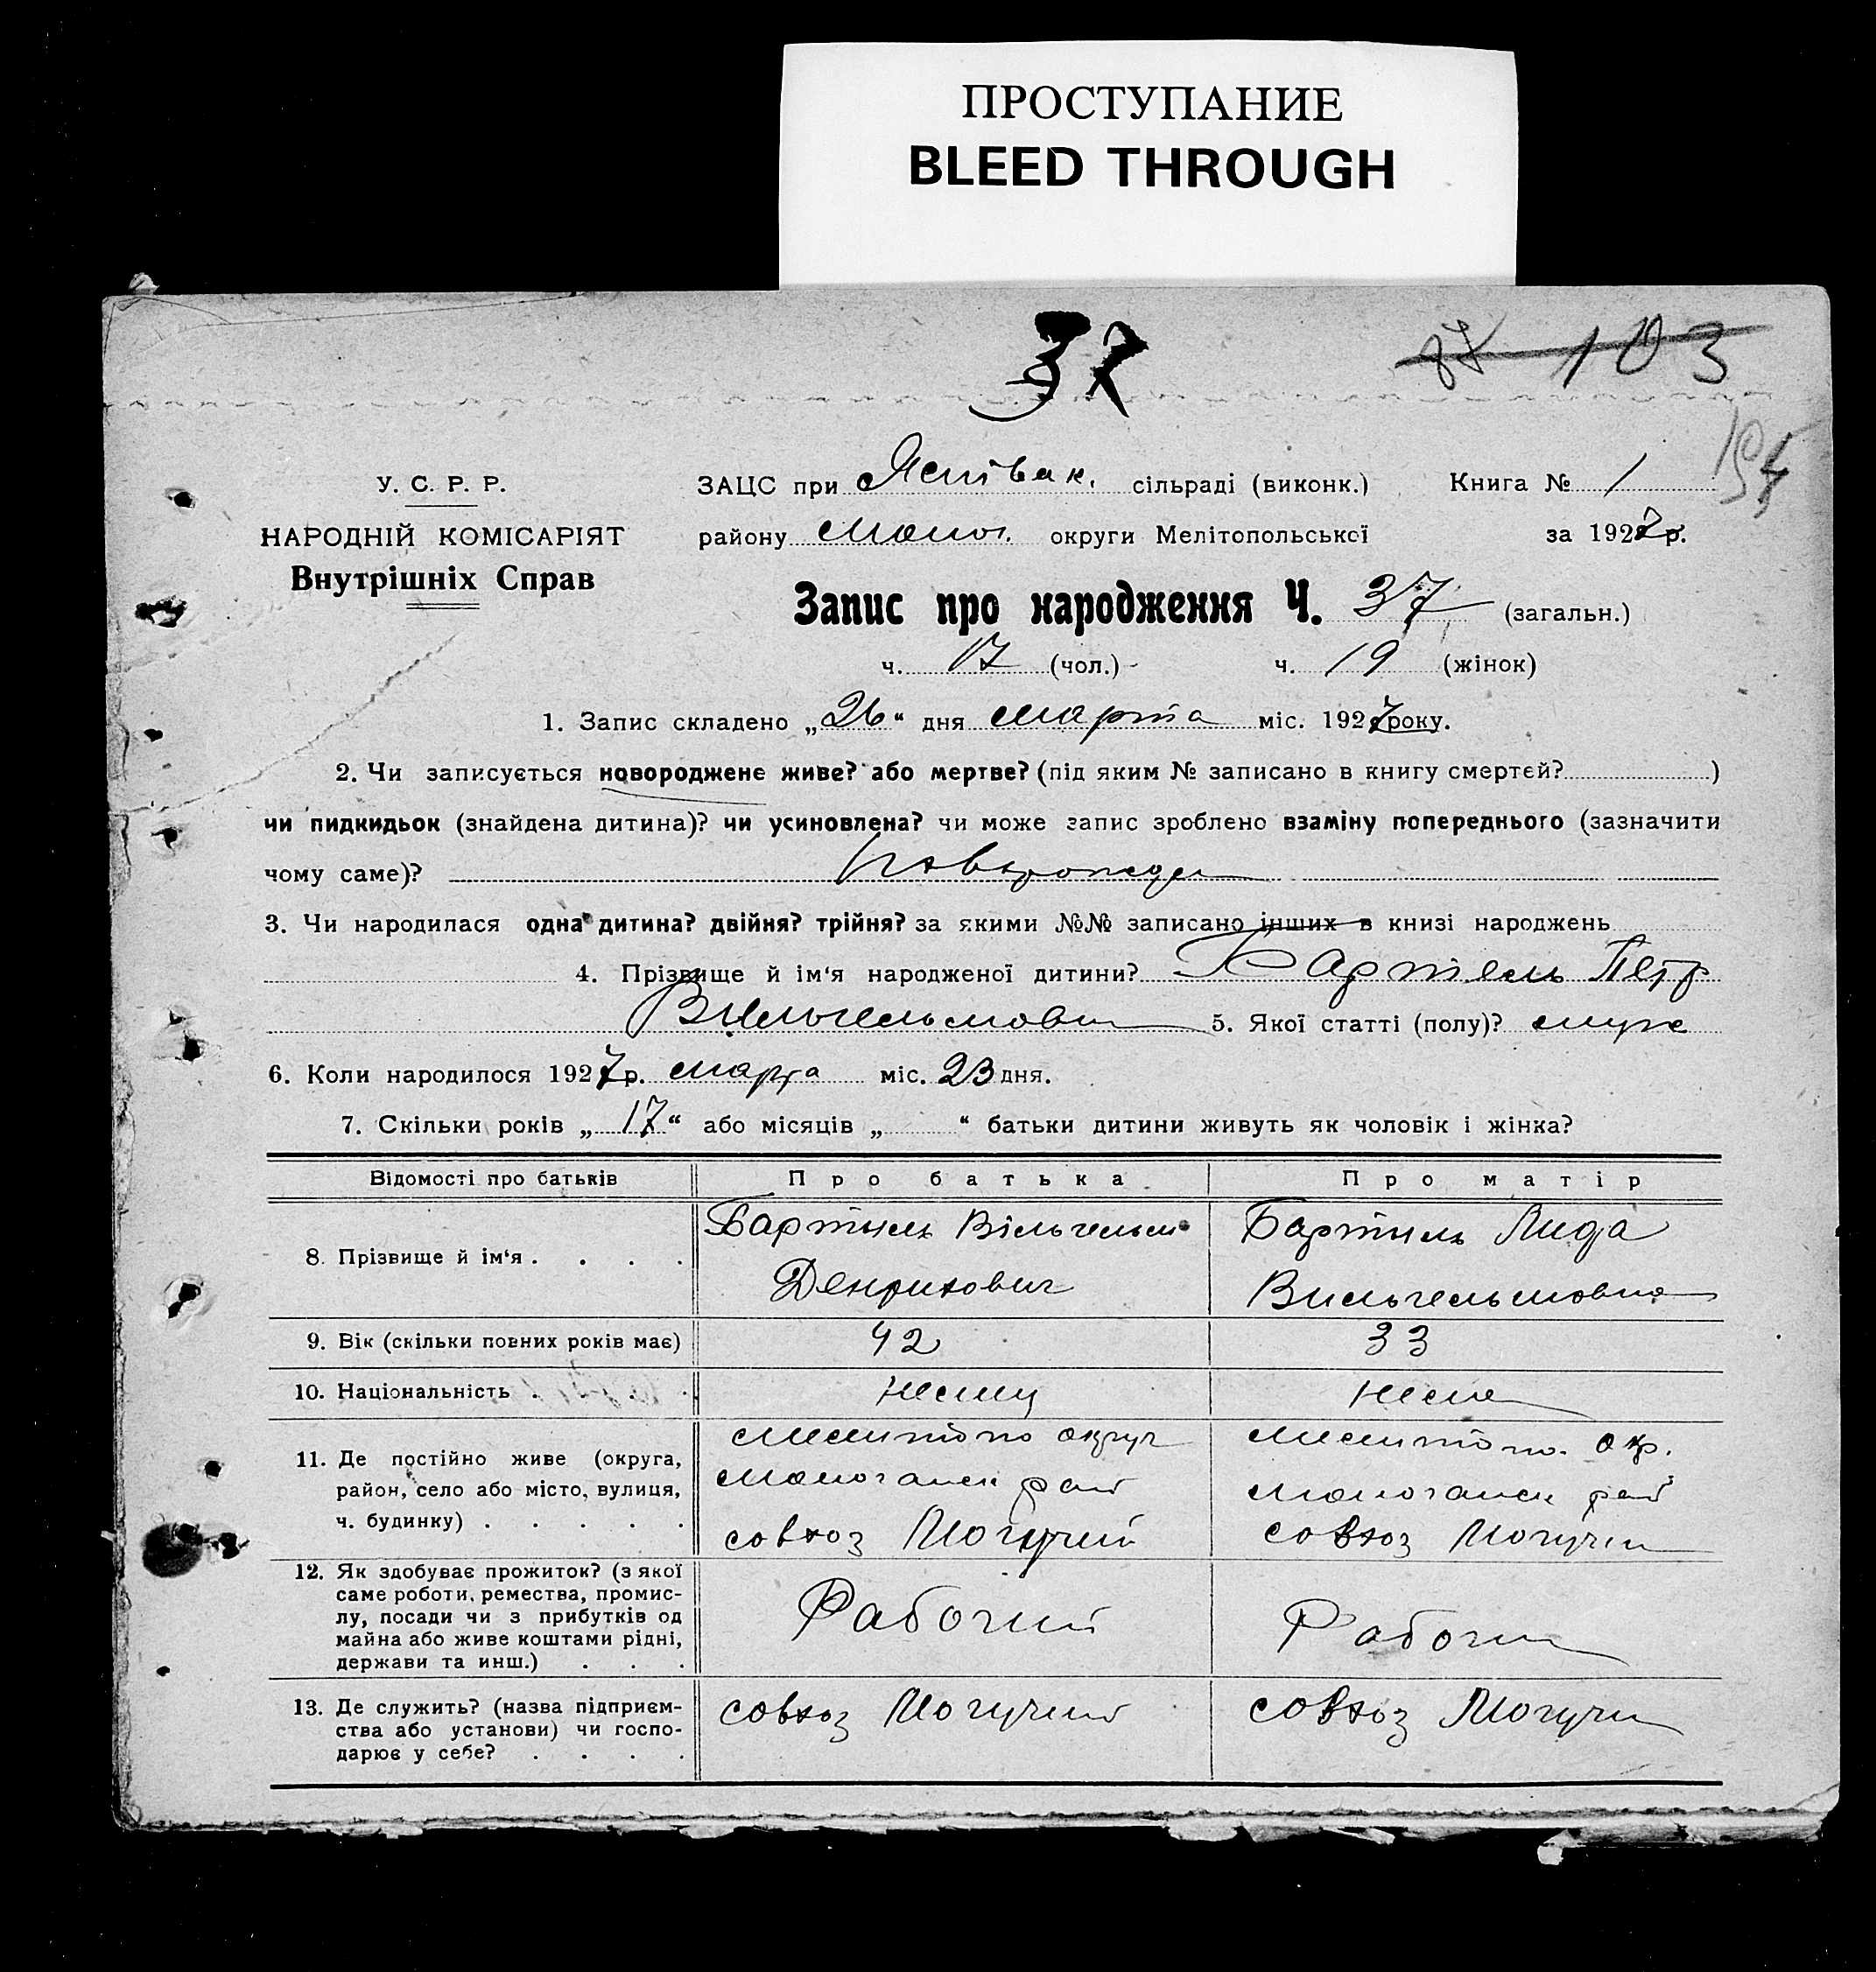 ПРОСТУПАНИЕ
BLEED THROUGH
37
103
У. С. Р. Р.
НАРОДНІЙ КОМІСАРІЯТ
Внутрішніх Справ
ЗАЦС при сільраді (виконк.) Книга № 1
району округи Мелітопольської за 1927 р.
Запис про народження Ч. 37 (загальн.)
ч. 17 (чол.) ч. 19 (жінок)
1. Запис складено „26“ дня марта міс. 1927 року.
2. Чи записується новороджене живе? або мертве? (під яким № записано в книгу смертей? )
чи пидкидьок (знайдена дитина)? чи усиновлена? чи може запис зроблено взаміну попереднього (зазначити
чому саме)? новорожден
3. Чи народилася одна дитина? двійня? трійня? за якими №№ записано інших в книзі народжень
4. Прізвище й ім‘я народженої дитини? Бартель Петр
Вильгельмович 5. Якої статті (полу)? муж
6. Коли народилося 1927 р. марта міс. 23 дня.
7. Скільки років „17“ або місяців „ “ батьки дитини живуть як чоловік і жінка?
Відомості про батьків Про батька Про матір
8. Прізвище й ім‘я . . . . Бартель Вільгельм Бартель Лида
Генрихович Вильгельмовна
9. Вік (скільки повних років має) 42 33
10. Національність . . . . немец немк
11. Де постійно живе (округа, район, село або місто, вулиця, ч. будинку) . . . . .
Мелитопо округ
Мелитопо. окр.
Молочанск рай
Молочанск рай
совхоз Могучий
совхоз Могучи
12. Як здобуває прожиток? (з якої
саме роботи, ремества, промис-
лу, посади чи з прибутків од
майна або живе коштами рідні,
держави та инш.) . . .
Рабочий Рабочи
13. Де служить? (назва підприєм-
ства або установи) чи госпо-
дарює у себе? . . . .
совхоз Могучий совхоз Могучи